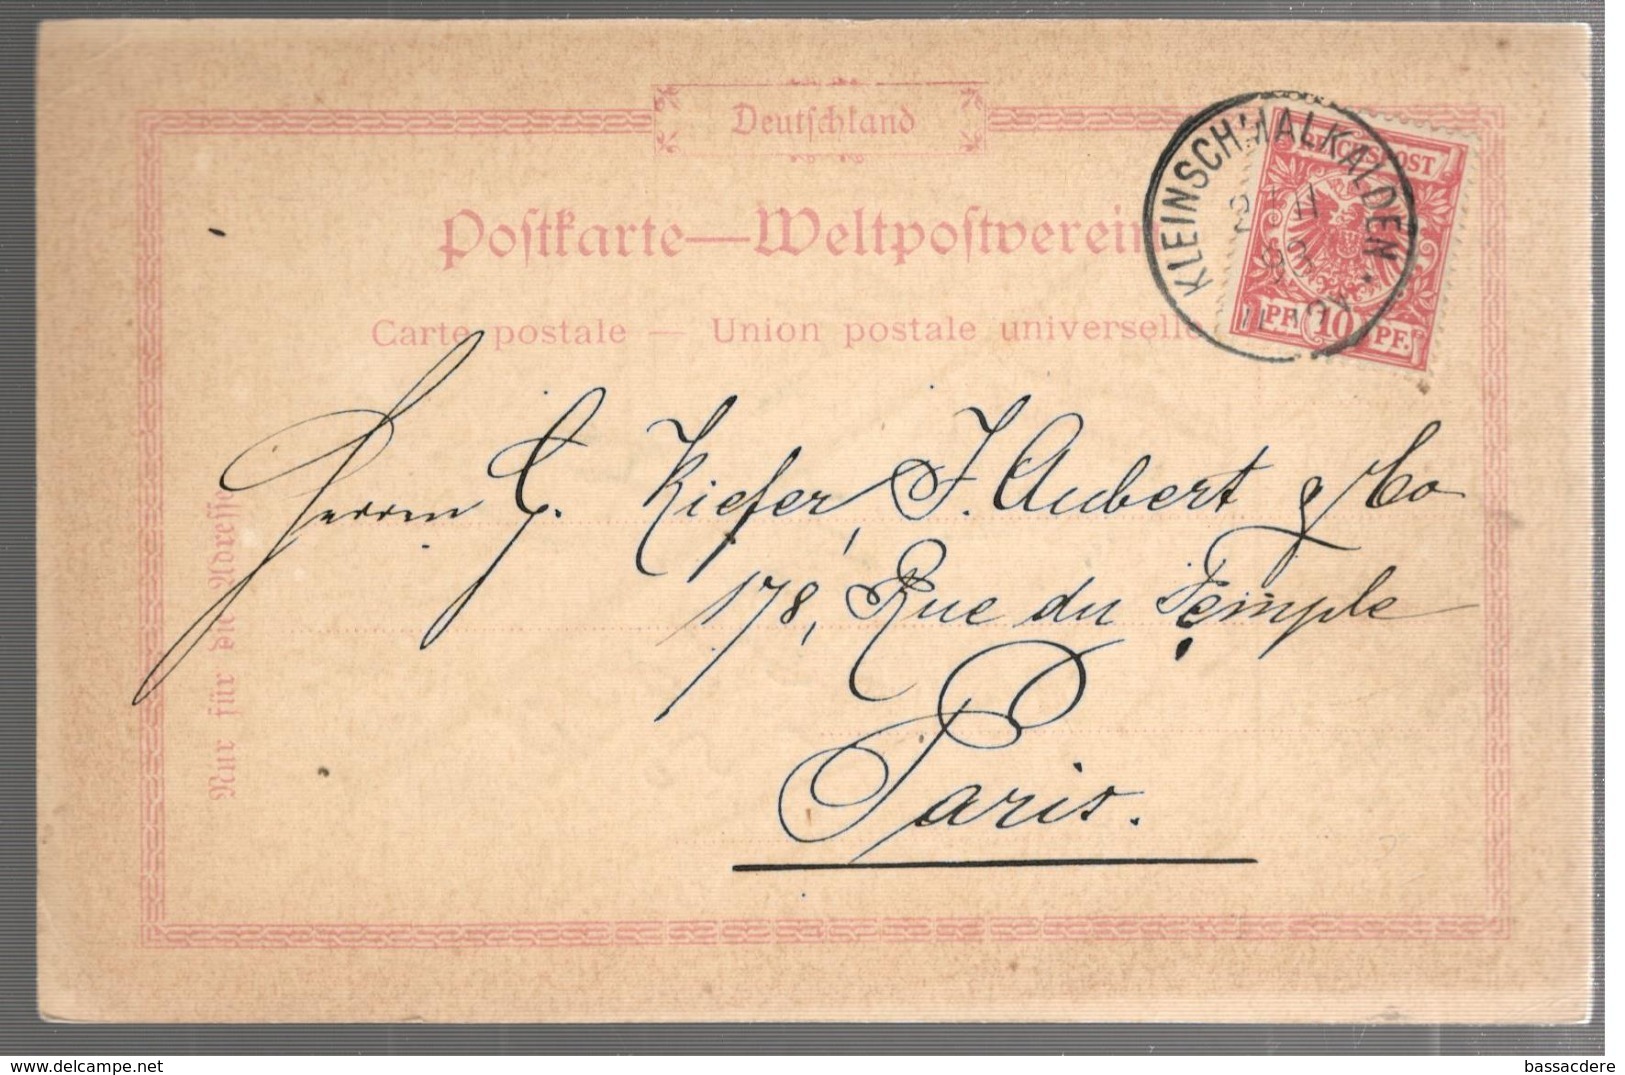 Deutschland
Postkarte—Weltpostverein
Carte postale — Union postale universelle
KLEINSCHMALKALDEN
REICHSPOST
PF. 10 PF.
Herrn G. Kiefer, J. Aubert & Co
178, Rue du Temple
Paris.
Nur für die Adresse
bassacdere